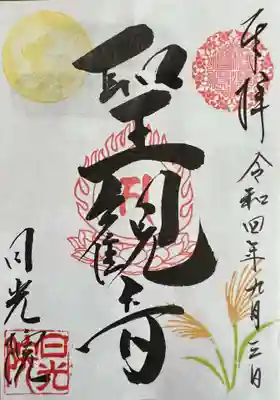 奉拝 令和四年九月三日
聖観音
日光院